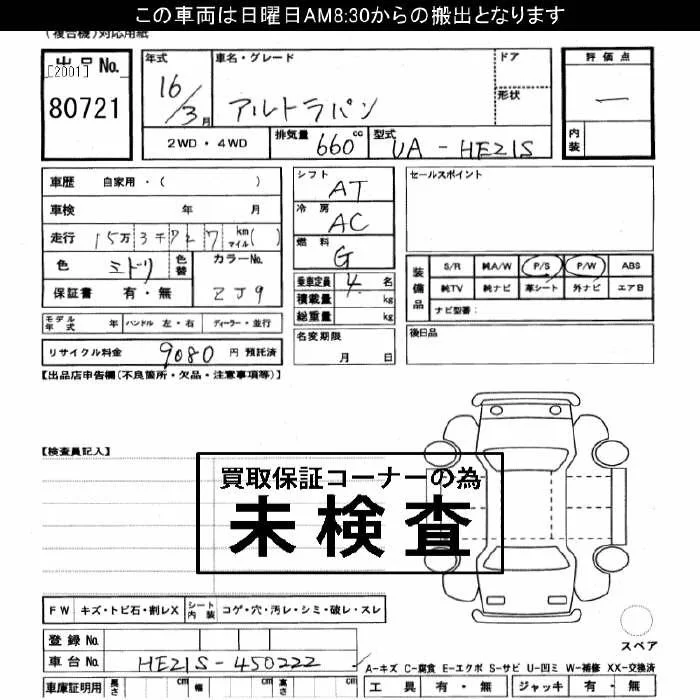 この車両は日曜日AM8:30からの搬出となります
(複合機)対応用紙
出品No.
[2001]
80721
年式
16/3月
車名・グレード
アルトラパン
ドア
形状
2WD・4WD
排気量 660cc
型式 UA-HE21S
評価点
―
内装
車歴 自家用・( )
車検 年 月
走行 15万3千727km マイル( )
色 ミドリ 色替
カラーNo.
ZJ9
保証書 有・無
シフト
AT
冷房
AC
燃料
G
乗車定員 4名
積載量 kg
総重量 kg
セールスポイント
装備品
S/R 純A/W P/S P/W ABS
純TV 純ナビ 革シート 外ナビ エアB
ナビ型番:
モデル年式 年 ハンドル 左・右 ディーラー・並行
リサイクル料金 9080円 預託済
名変期限
月 日
後日品
【出品店申告欄(不良箇所・欠品・注意事項等)】
【検査員記入】
買取保証コーナーの為
未検査
FW キズ・トビ石・割レX シート内装 コゲ・穴・汚レ・シミ・破レ・スレ
スペア
登録No.
車台No. HE21S-450222
A-キズ C-腐食 E-エクボ S-サビ U-凹ミ W-補修 XX-交換済
車庫証明用 長さ cm 幅 cm 高さ cm
工具 有・無 ジャッキ 有・無